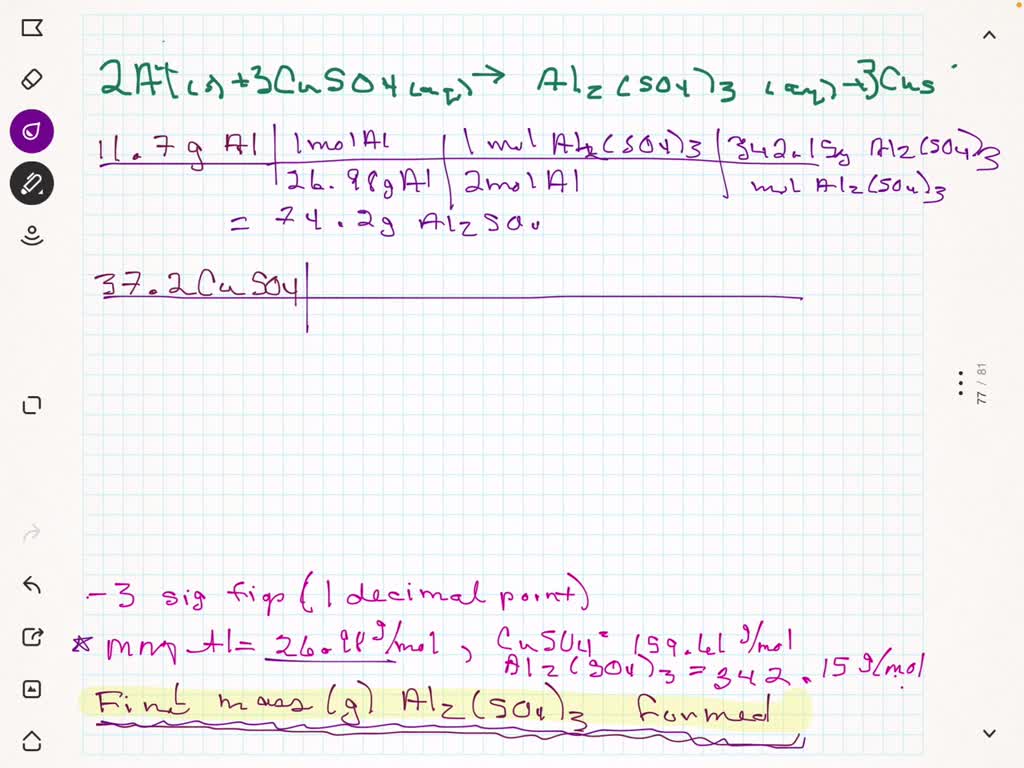 2Al(s)+3CuSO4(aq)→ Al2(SO4)3 (aq)+3Cus
11.7g Al | 1molAl | 1 mol Al2(SO4)3 | 342.15g Al2(SO4)3
26.98gAl | 2molAl | mol Al2(SO4)3
= 74.2g Al2SO4
37.2CuSO4
77 / 81
-3 sig figs (1 decimal point)
* mm Al= 26.98g/mol, CuSO4= 159.61 g/mol
Al2(SO4)3 = 342.15g/mol
Find mass (g) Al2(SO4)3 formed